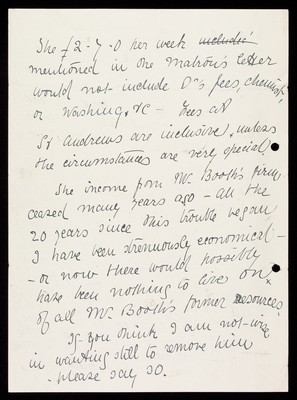 The £2-7-0 per week include
mentioned in the matron's letter
would not include Drs fees, chemist,
or washing, &c - Fees at
St Andrews are inclusive, unless
the circumstances are very special.
The income from Mr. Booth's firm
ceased many years ago - all the
20 years since this trouble began
I have been strenuously economical -
- or now there would possibly
have been nothing to live on
of all Mr. Booth's former resources.
If you think I am not wise
in wanting still to remove him
- please say so.